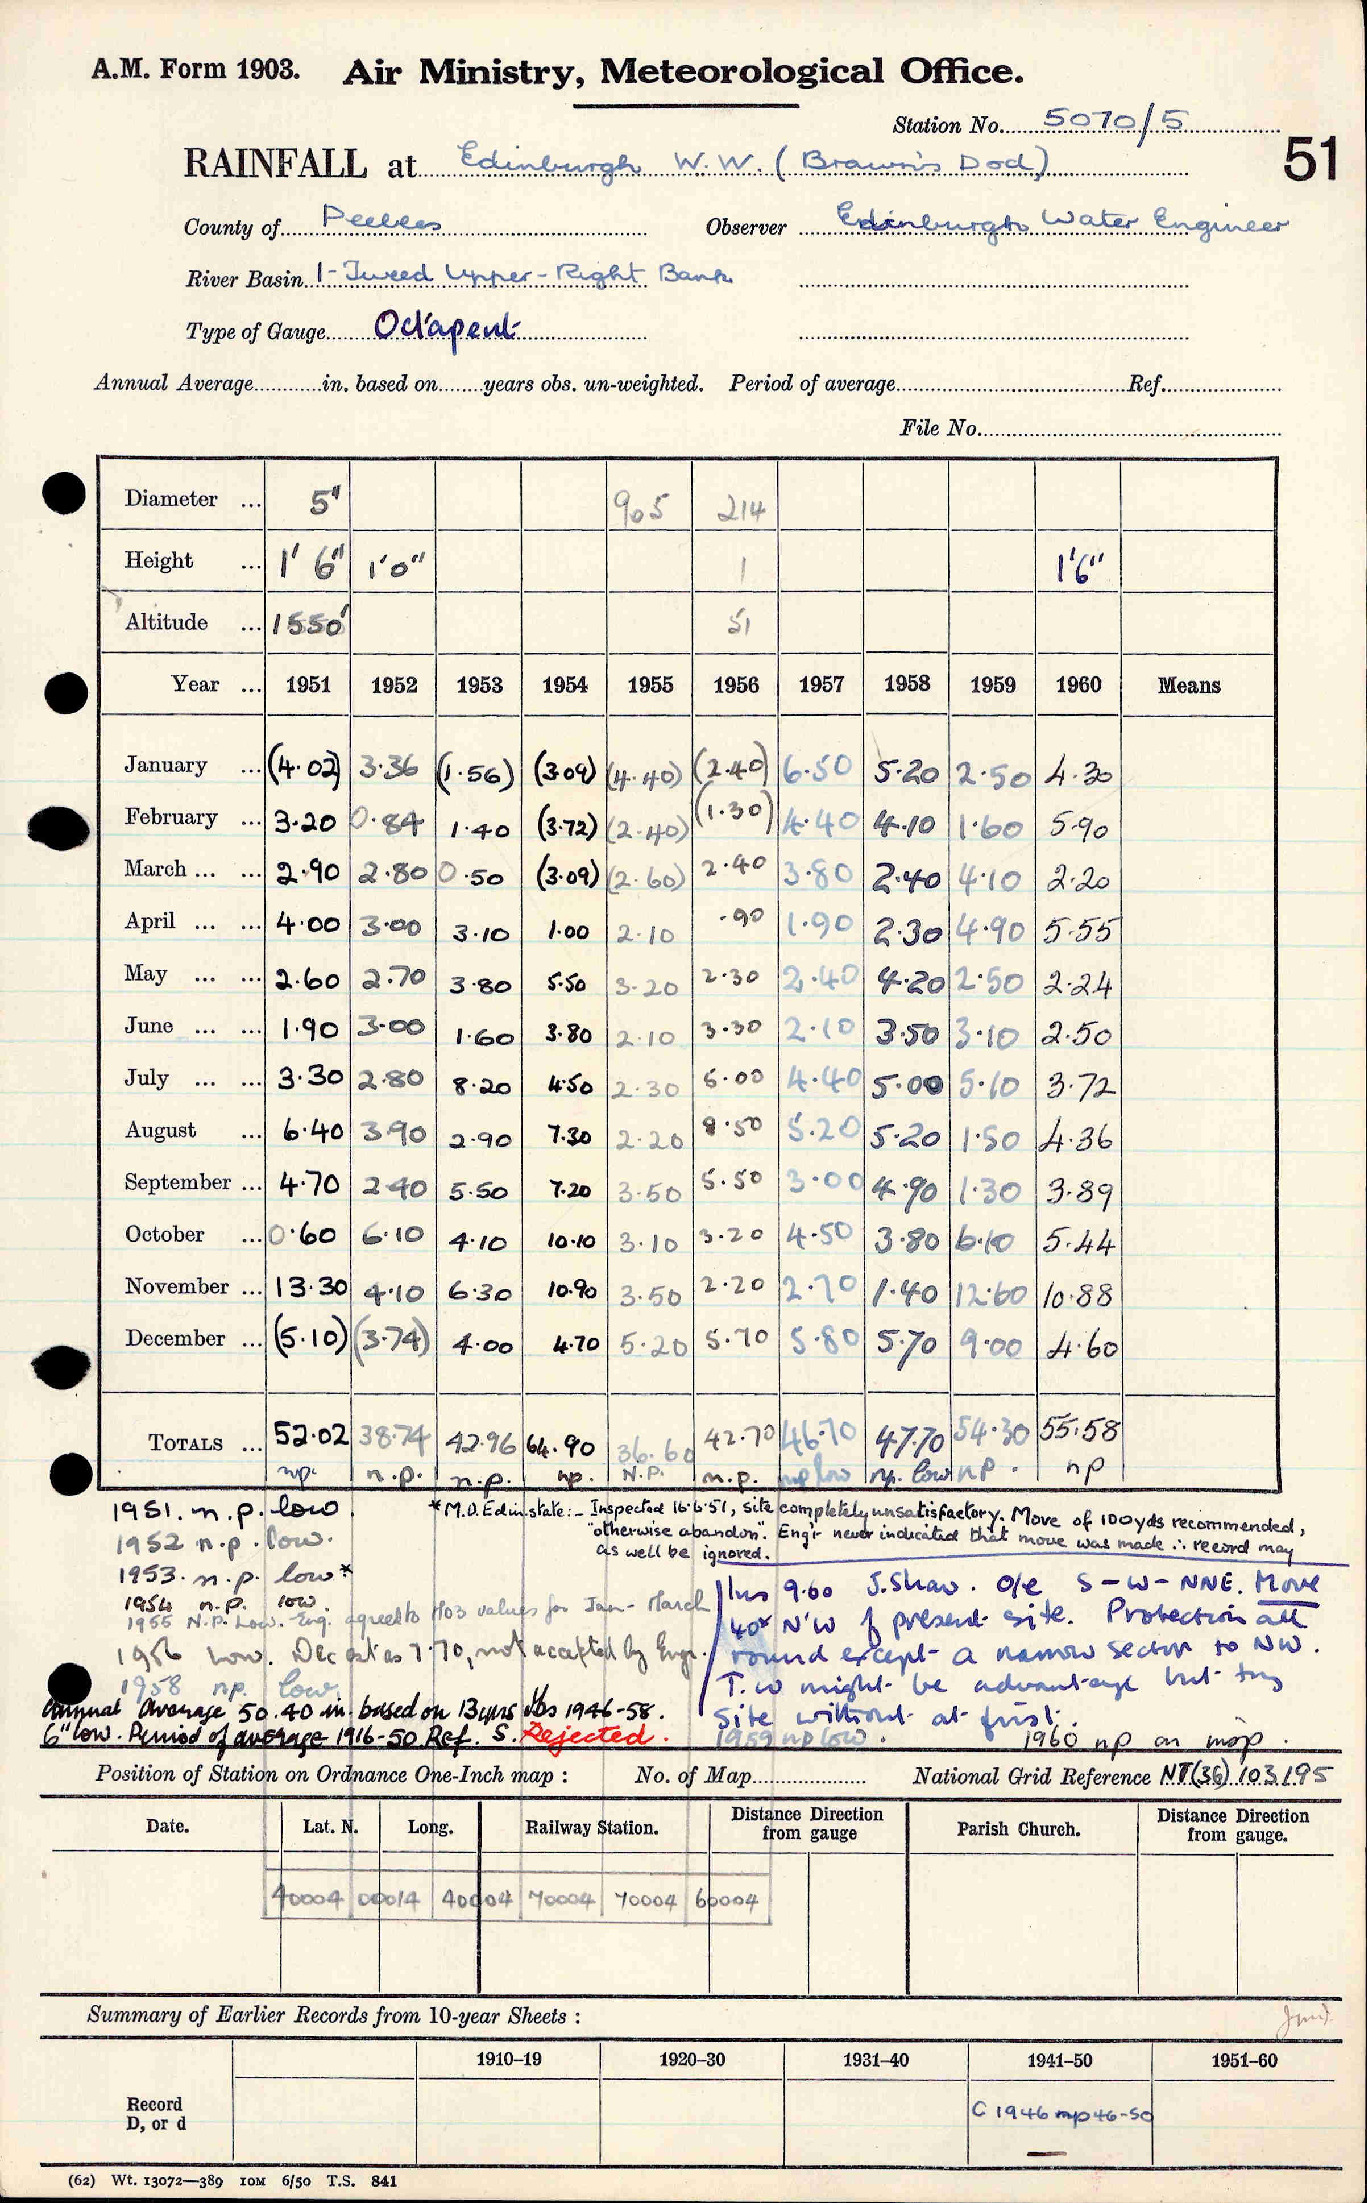 A.M. Form 1903. Air Ministry, Meteorological Office.
Station No. 5070/5
51
RAINFALL at Edinburgh W.W. (Brown's Dod)
County of Peebles Observer Edinburgh Water Engineer
River Basin 1-Tweed Upper-Right Bank
Type of Gauge Octapent
Annual Average in. based on years obs. un-weighted. Period of average Ref.
File No.
Diameter ... 5" 905 214
Height ... 1' 6" 1'0" 1 1'6"
Altitude ... 1550' 51
Year ... 1951 1952 1953 1954 1955 1956 1957 1958 1959 1960 Means
January ... (4.02) 3.36 (1.56) (3.09) (4.40) (2.40) 6.50 5.20 2.50 4.30
February ... 3.20 0.84 1.40 (3.72) (2.40) (1.30) 4.40 4.10 1.60 5.90
March ... ... 2.90 2.80 0.50 (3.09) (2.60) 2.40 3.80 2.40 4.10 2.20
April ... ... 4.00 3.00 3.10 1.00 2.10 .90 1.90 2.30 4.90 5.55
May ... ... 2.60 2.70 3.80 5.50 3.20 2.30 2.40 4.20 2.50 2.24
June ... ... 1.90 3.00 1.60 3.80 2.10 3.30 2.10 3.50 3.10 2.50
July ... ... 3.30 2.80 8.20 4.50 2.30 5.00 4.40 5.00 5.10 3.72
August ... 6.40 3.90 2.90 7.30 2.20 8.50 5.20 5.20 1.50 4.36
September ... 4.70 2.40 5.50 7.20 3.50 5.50 3.00 4.90 1.30 3.89
October ... 0.60 6.10 4.10 10.10 3.10 3.20 4.50 3.80 6.10 5.44
November ... 13.30 4.10 6.30 10.90 3.50 2.20 2.70 1.40 12.60 10.88
December ... (5.10) (3.74) 4.00 4.70 5.20 5.70 5.80 5.70 9.00 4.60
TOTALS ... 52.02 38.74 42.96 64.90 36.60 42.70 46.70 47.70 54.30 55.58
np. n.p. n.p. np. N.P. n.p. np low np. low np. np
1951. n.p. low
1952 n.p. low.
1953. n.p. low*
1954 n.p. low.
1955 N.P. Low. Eng. agreed to MO3 values for Jan - March
1956 low. Dec est as 7.70, not accepted by Engr.
1958 np. low
Annual Average 50.40 in. based on 13 yrs obs 1946-58.
6" low. Period of average 1916-50 Ref. S. Rejected.
*M.O. Edin. state:- Inspected 16.6.51, site completely unsatisfactory. Move of 100yds recommended,
"otherwise abandon". Eng'r never indicated that move was made ∴ record may
as well be ignored.
Ins 9.60 J. Shaw. o/e S-W-NNE. Move
40x N'W of present site. Protection all
round except a narrow sector to NW.
T.W might be advantage but try
site without at first.
1959 np low.
1960 np on map.
Position of Station on Ordnance One-Inch map : No. of Map National Grid Reference NT(36) 103195
Date. Lat. N. Long. Railway Station. Distance Direction from gauge Parish Church. Distance Direction from gauge.
40004 00014 40004 70004 70004 60004
Summary of Earlier Records from 10-year Sheets :
1910–19 1920–30 1931–40 1941–50 1951–60
Record
D, or d
C 1946 np 46-50
(62) Wt. 13072—389 10M 6/50 T.S. 841